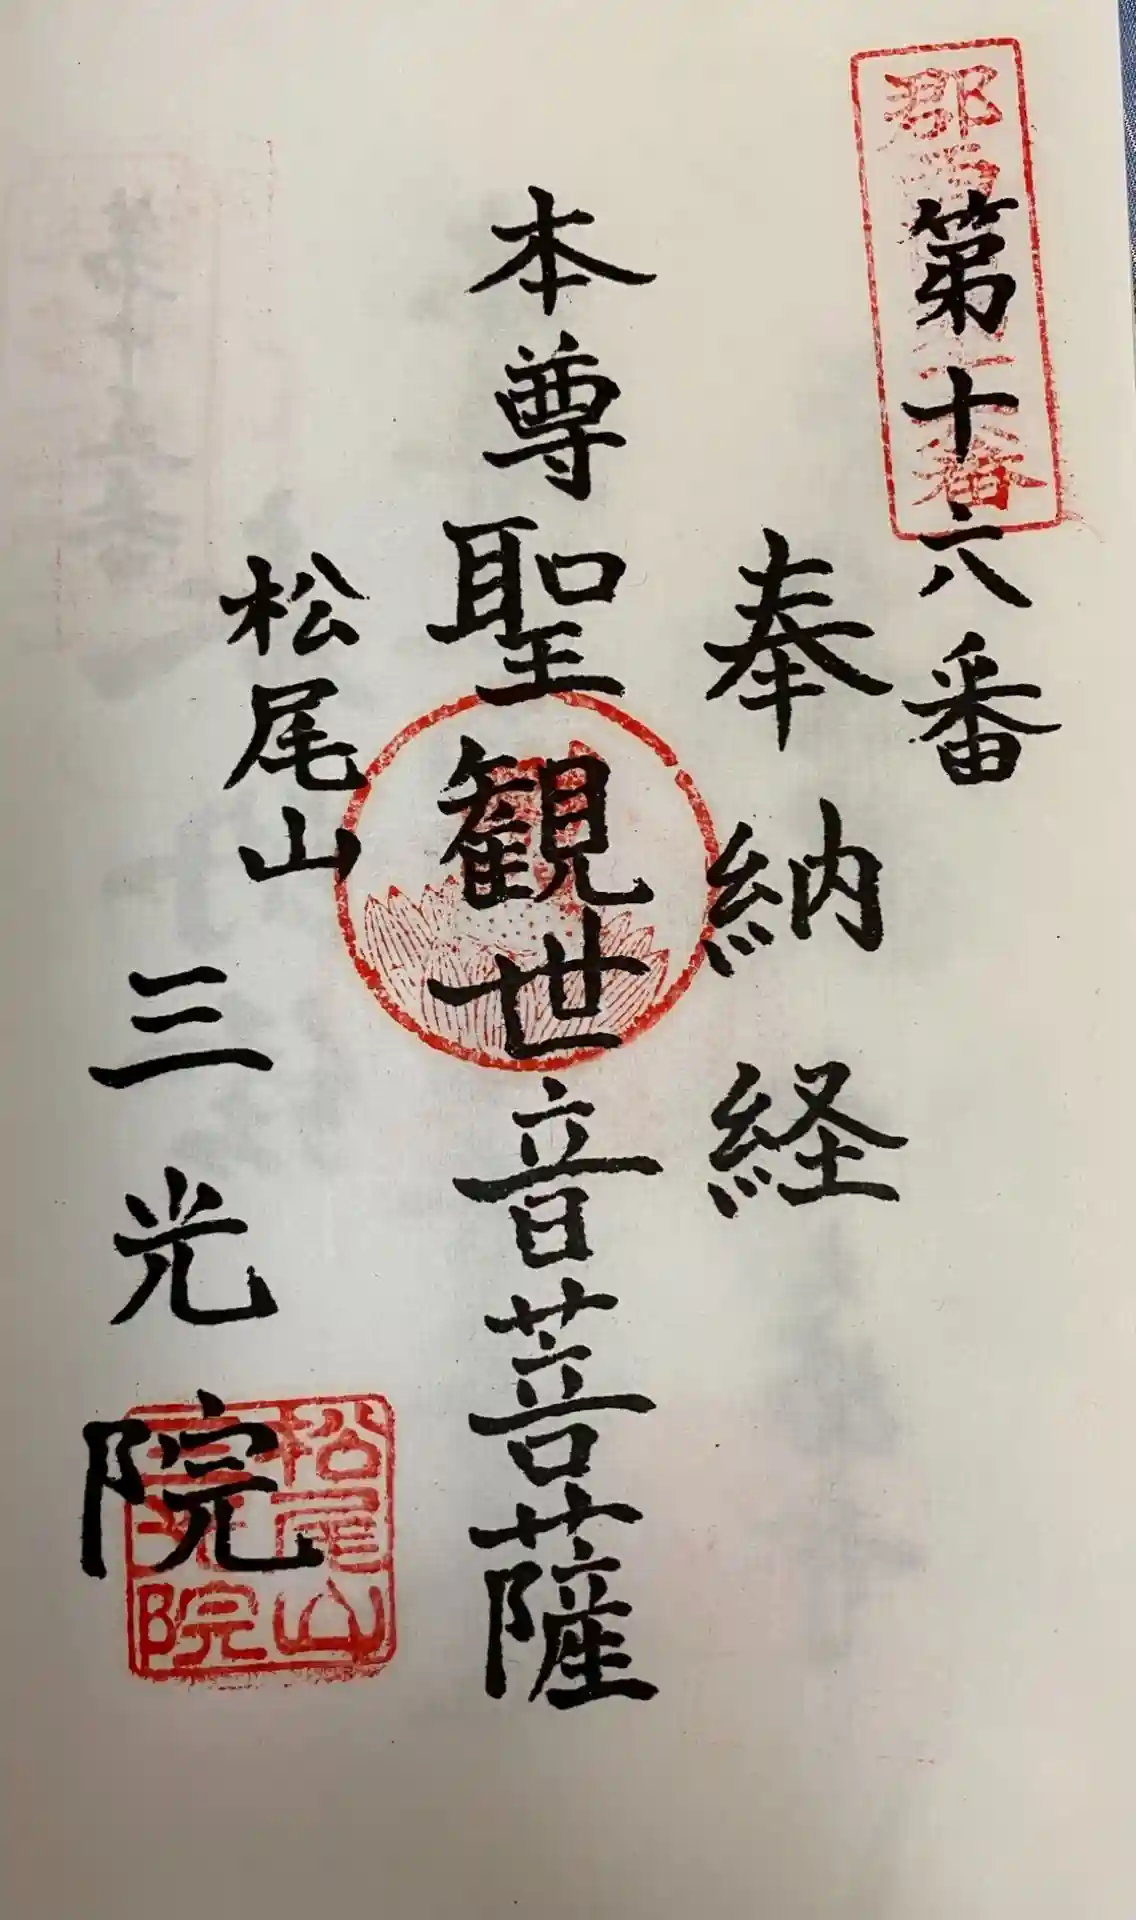 第十六番
奉納経
本尊聖観世音菩薩
松尾山
三光院
松尾山
院